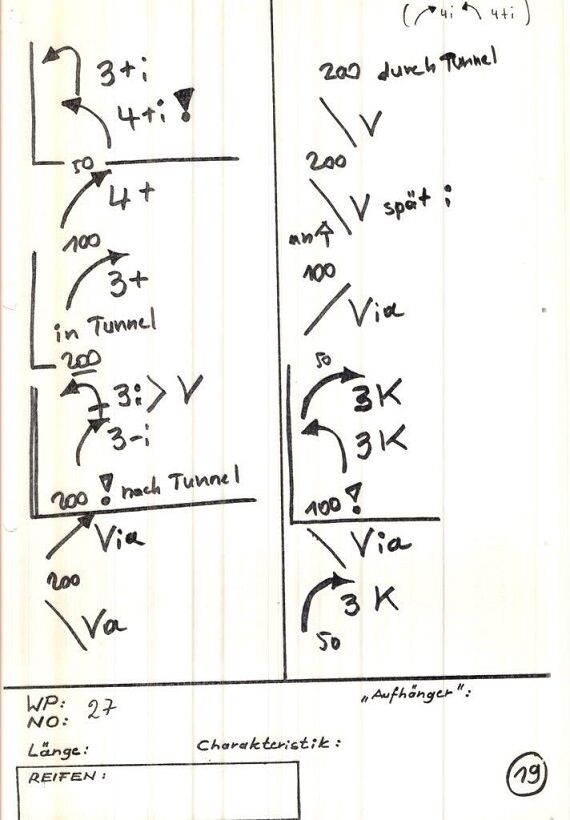 ( 4i 4+i )
3+i
4+i !
50
4+
100
3+
in Tunnel
200
3i > V
3-i
200 ! nach Tunnel
Via
200
Va
200 durch Tunnel
V
200
V spät i
100
Via
50
3K
3K
100 !
Via
3K
50
WP: 27
NO:
„Aufhänger":
Länge: Charakteristik:
REIFEN:
19